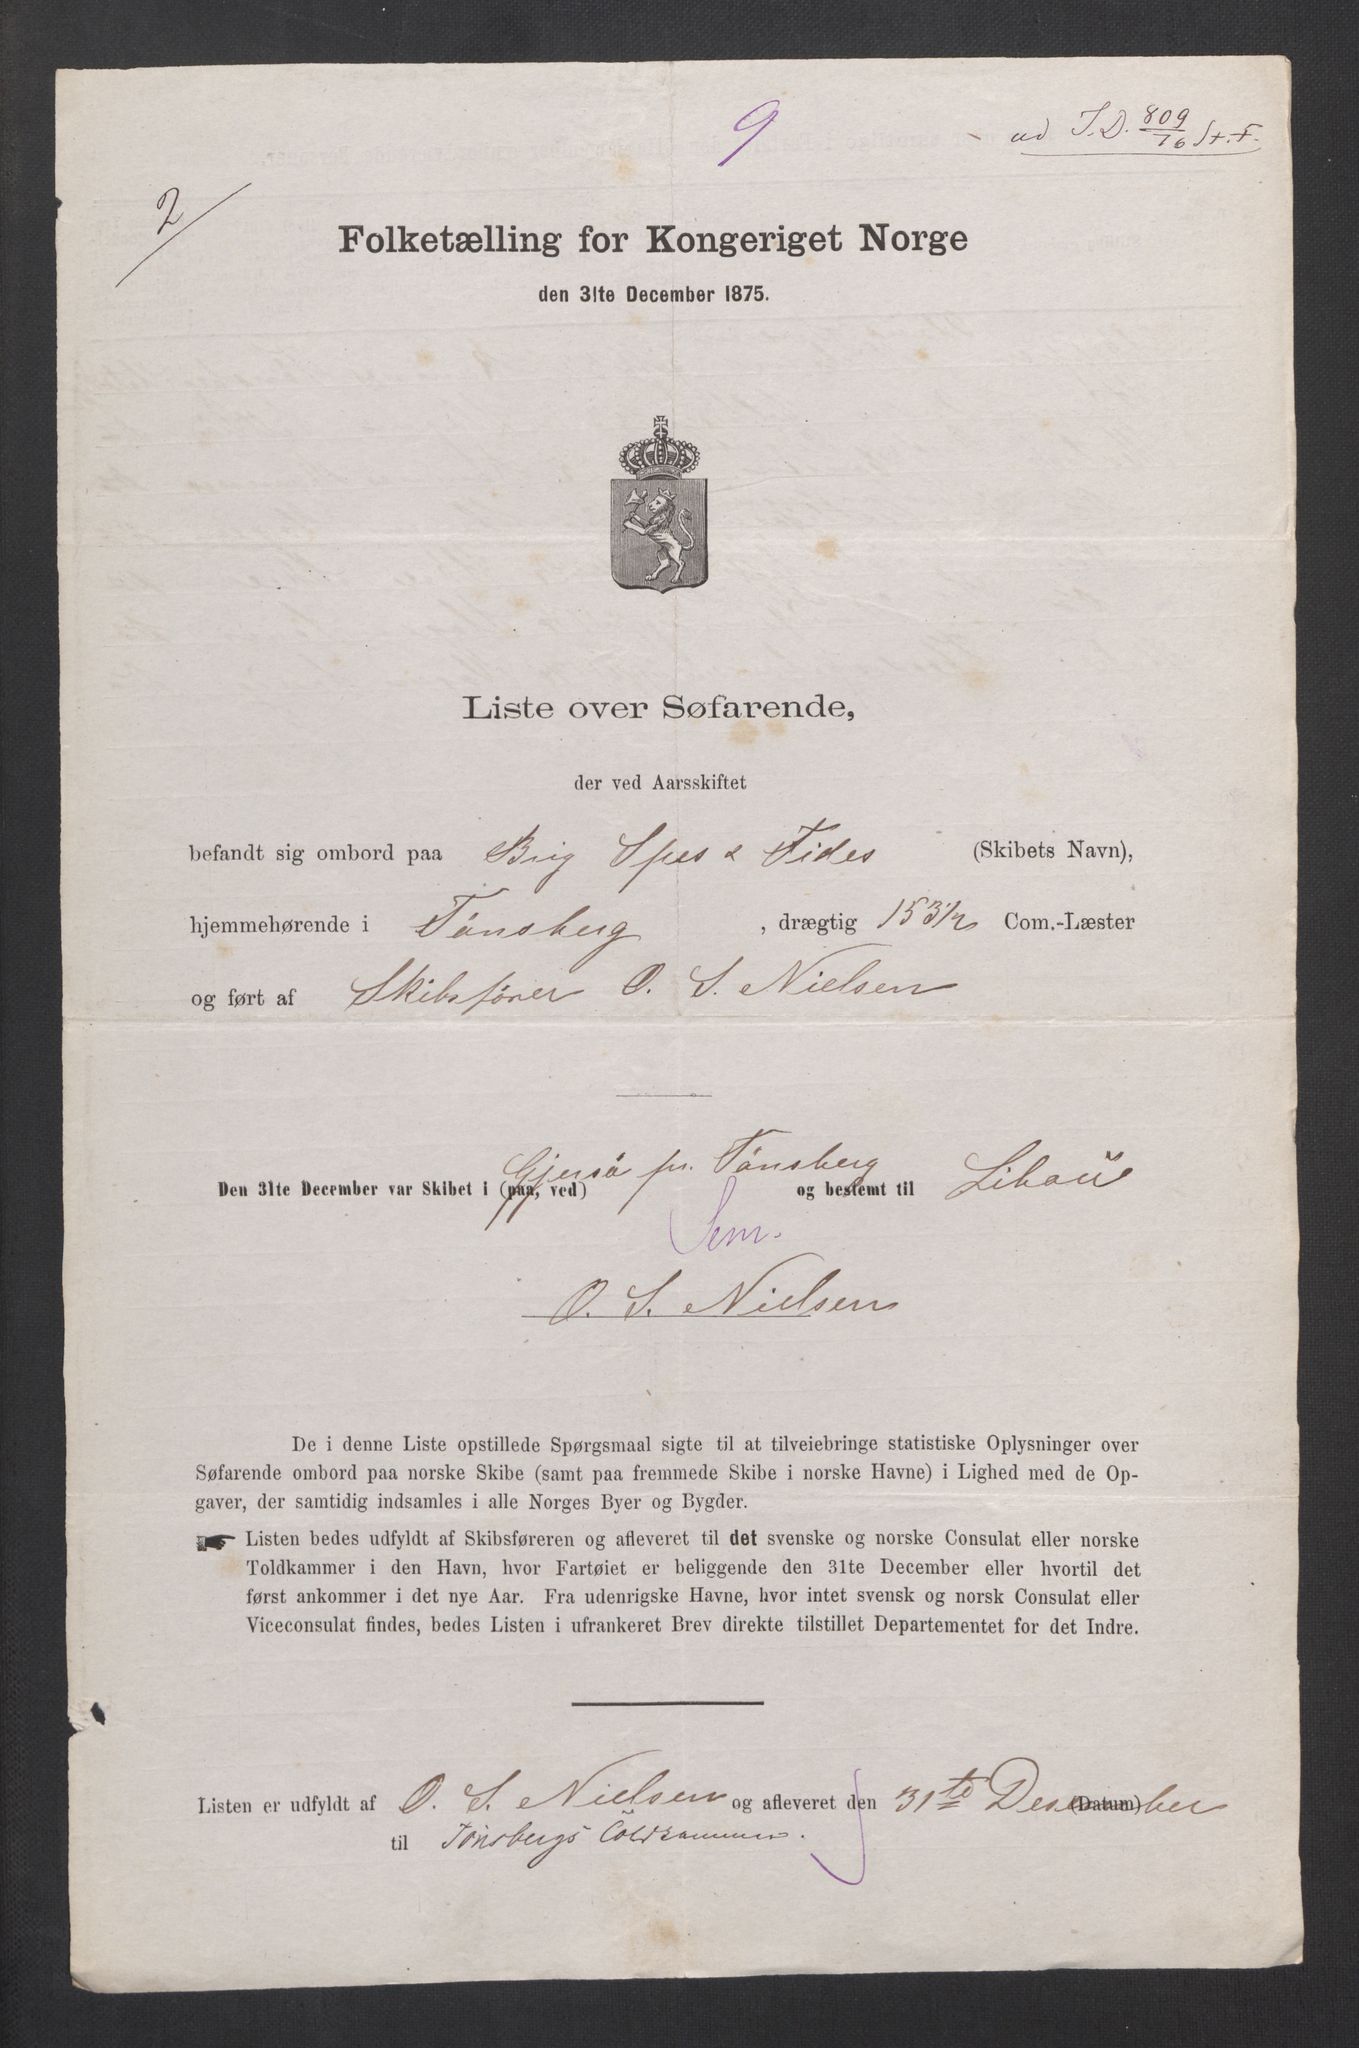 9
ad J.D. 809/76 St. F.
2/
Folketælling for Kongeriget Norge
den 31te December 1875.
Liste over Søfarende,
der ved Aarsskiftet
befandt sig ombord paa Brig Spes & Fides (Skibets Navn),
hjemmehørende i Tønsberg, drægtig 153 1/2 Com.-Læster
og ført af Skibsfører O. S. Nielsen
Den 31te December var Skibet i (paa, ved) Gjersø pr. Tønsberg og bestemt til Libau
Sem.
O. S. Nielsen
De i denne Liste opstillede Spørgsmaal sigte til at tilveiebringe statistiske Oplysninger over
Søfarende ombord paa norske Skibe (samt paa fremmede Skibe i norske Havne) i Lighed med de Op-
gaver, der samtidig indsamles i alle Norges Byer og Bygder.
Listen bedes udfyldt af Skibsføreren og afleveret til det svenske og norske Consulat eller norske
Toldkammer i den Havn, hvor Fartøiet er beliggende den 31te December eller hvortil det
først ankommer i det nye Aar. Fra udenrigske Havne, hvor intet svensk og norsk Consulat eller
Viceconsulat findes, bedes Listen i ufrankeret Brev direkte tilstillet Departementet for det Indre.
Listen er udfyldt af O. S. Nielsen og afleveret den 31te Desember (Datum)
til Tønsbergs Toldkammer.